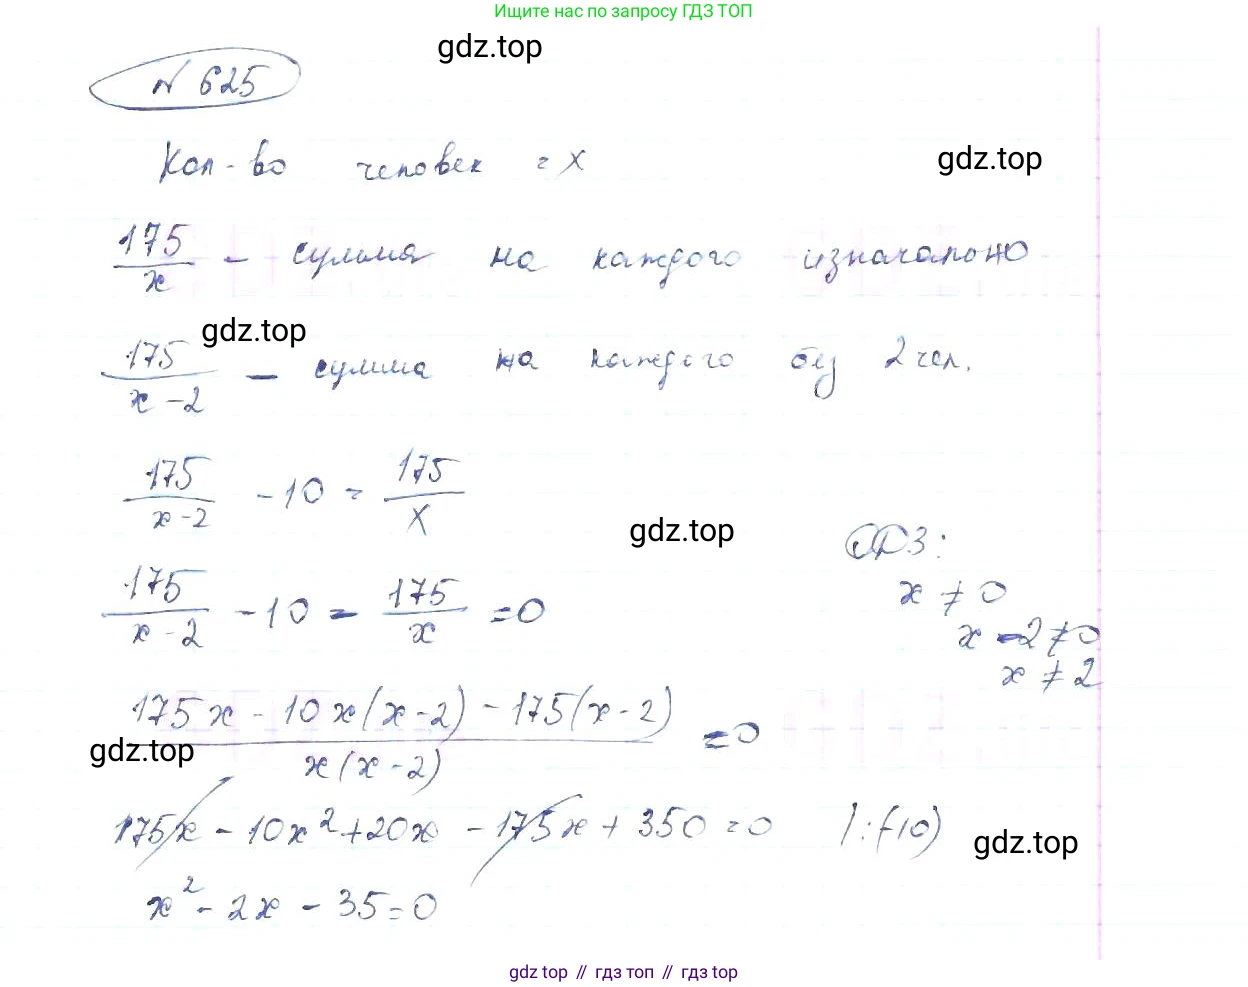 Ищите нас по запросу ГДЗ ТОП
gdz.top
№ 625
Кол-во человек = x
gdz.top
175/x – сумма на каждого изначально
gdz.top
175/(x-2) – сумма на каждого без 2 чел.
175/(x-2) - 10 = 175/x
gdz.top
ОДЗ:
x ≠ 0
x - 2 ≠ 0
x ≠ 2
175/(x-2) - 10 - 175/x = 0
(175x - 10x(x-2) - 175(x-2))/(x(x-2)) = 0
gdz.top
175x - 10x² + 20x - 175x + 350 = 0 | :(-10)
gdz.top
x² - 2x - 35 = 0
gdz top // гдз топ // gdz top